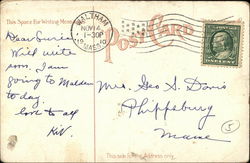 This Space For Writing Messages
POST CARD
WALTHAM
NOV 14
1-30P
MASS.
Dear Eunice
Will write
soon. I am
going to Malden
to day
love to all
Mrs. Geo. S. Davis
Phippsburg
Maine
ONE CENT
This side for the Address only.
5